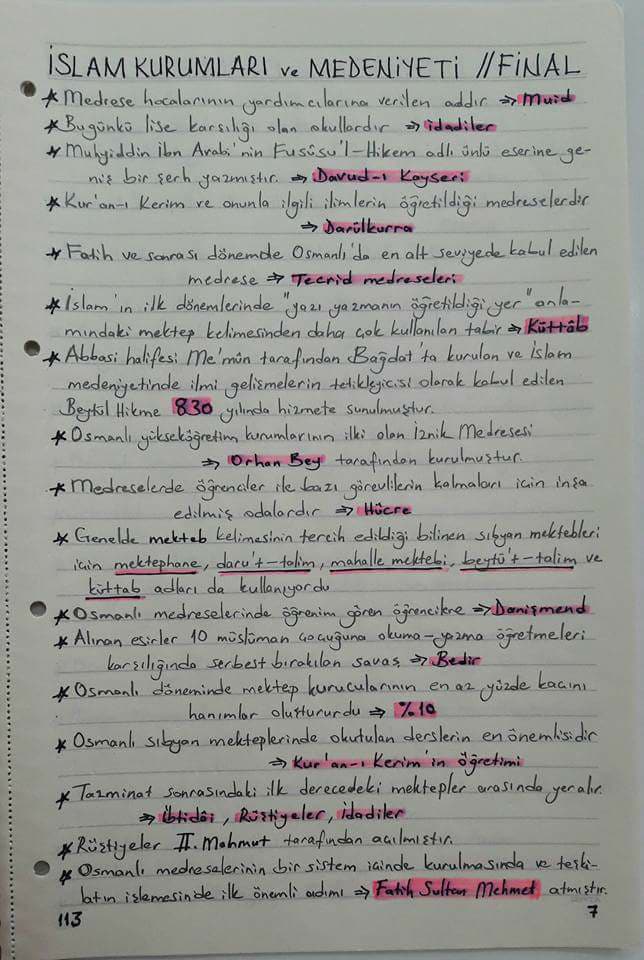 İSLAM KURUMLARI ve MEDENİYETİ // FİNAL
* Medrese hocalarının yardımcılarına verilen addır ⇒ Muid
* Bugünkü lise karşılığı olan okullardır ⇒ idadiler
* Muhyiddin İbn Arabi'nin Fusûsu'l-Hikem adlı ünlü eserine ge-
niş bir şerh yazmıştır. ⇒ Davud-ı Kayseri
* Kur'an-ı Kerim ve onunla ilgili ilimlerin öğretildiği medreselerdir
⇒ Darülkurra
* Fatih ve sonrası dönemde Osmanlı'da en alt seviyede kabul edilen
medrese ⇒ Tecrid medreseleri
* İslam'ın ilk dönemlerinde "yazı yazmanın öğretildiği yer" anla-
mındaki mektep kelimesinden daha çok kullanılan tabir ⇒ Küttâb
* Abbasi halifesi Me'mûn tarafından Bağdat'ta kurulan ve İslam
medeniyetinde ilmi gelişmelerin tetikleyicisi olarak kabul edilen
Beytül Hikme 830 yılında hizmete sunulmuştur.
* Osmanlı yükseköğretim kurumlarının ilki olan İznik Medresesi
⇒ Orhan Bey tarafından kurulmuştur.
* Medreselerde öğrenciler ile bazı görevlilerin kalmaları için inşa
edilmiş odalardır ⇒ Hücre
* Genelde mekteb kelimesinin tercih edildiği bilinen sıbyan mektebleri
için mektephane, daru't-talim, mahalle mektebi, beytü't-talim ve
küttab adları da kullanıyordu
* Osmanlı medreselerinde öğrenim gören öğrencilere ⇒ Danişmend
* Alınan esirler 10 müslüman çocuğuna okuma-yazma öğretmeleri
karşılığında serbest bırakılan savaş ⇒ Bedir
* Osmanlı döneminde mektep kurucularının en az yüzde kaçını
hanımlar oluştururdu ⇒ %10
* Osmanlı sıbyan mekteplerinde okutulan derslerin en önemlisidir
⇒ Kur'an-ı Kerim'in öğretimi
* Tazminat sonrasındaki ilk derecedeki mektepler arasında yer alır.
⇒ İbtidâi, Rüştiyeler, İdadiler
* Rüştiyeler II. Mahmut tarafından açılmıştır.
* Osmanlı medreselerinin bir sistem içinde kurulmasında ve teşki-
latın işlemesinde ilk önemli adımı ⇒ Fatih Sultan Mehmet atmıştır.
113
7